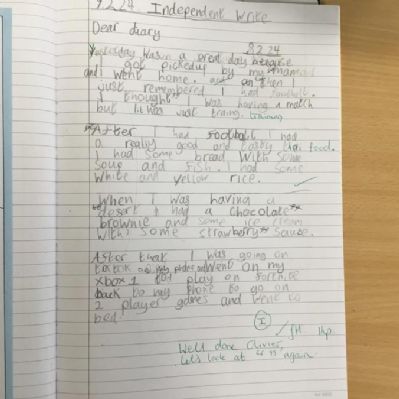 9.2.24 Independent Write
Dear diary
8.2.24
Yesterday was a great day because
I got pickedup by my mamas
and I went home. and then I
just remembered I had football.
I thought I was having a match
but it was just traing.
After I had football I had
a really good and tasty food.
I had some bread with some
soup and fish. I had some
white and yellow rice.
When I was having a
desert I had a chocolate
brownie and some ice cream
with some strawberry sause.
After that I was going on
my phone and went on my
xbox 1 to play on
back to my phone to go on
2 player games and went to
bed.
I
Well done
Let's look at " " again